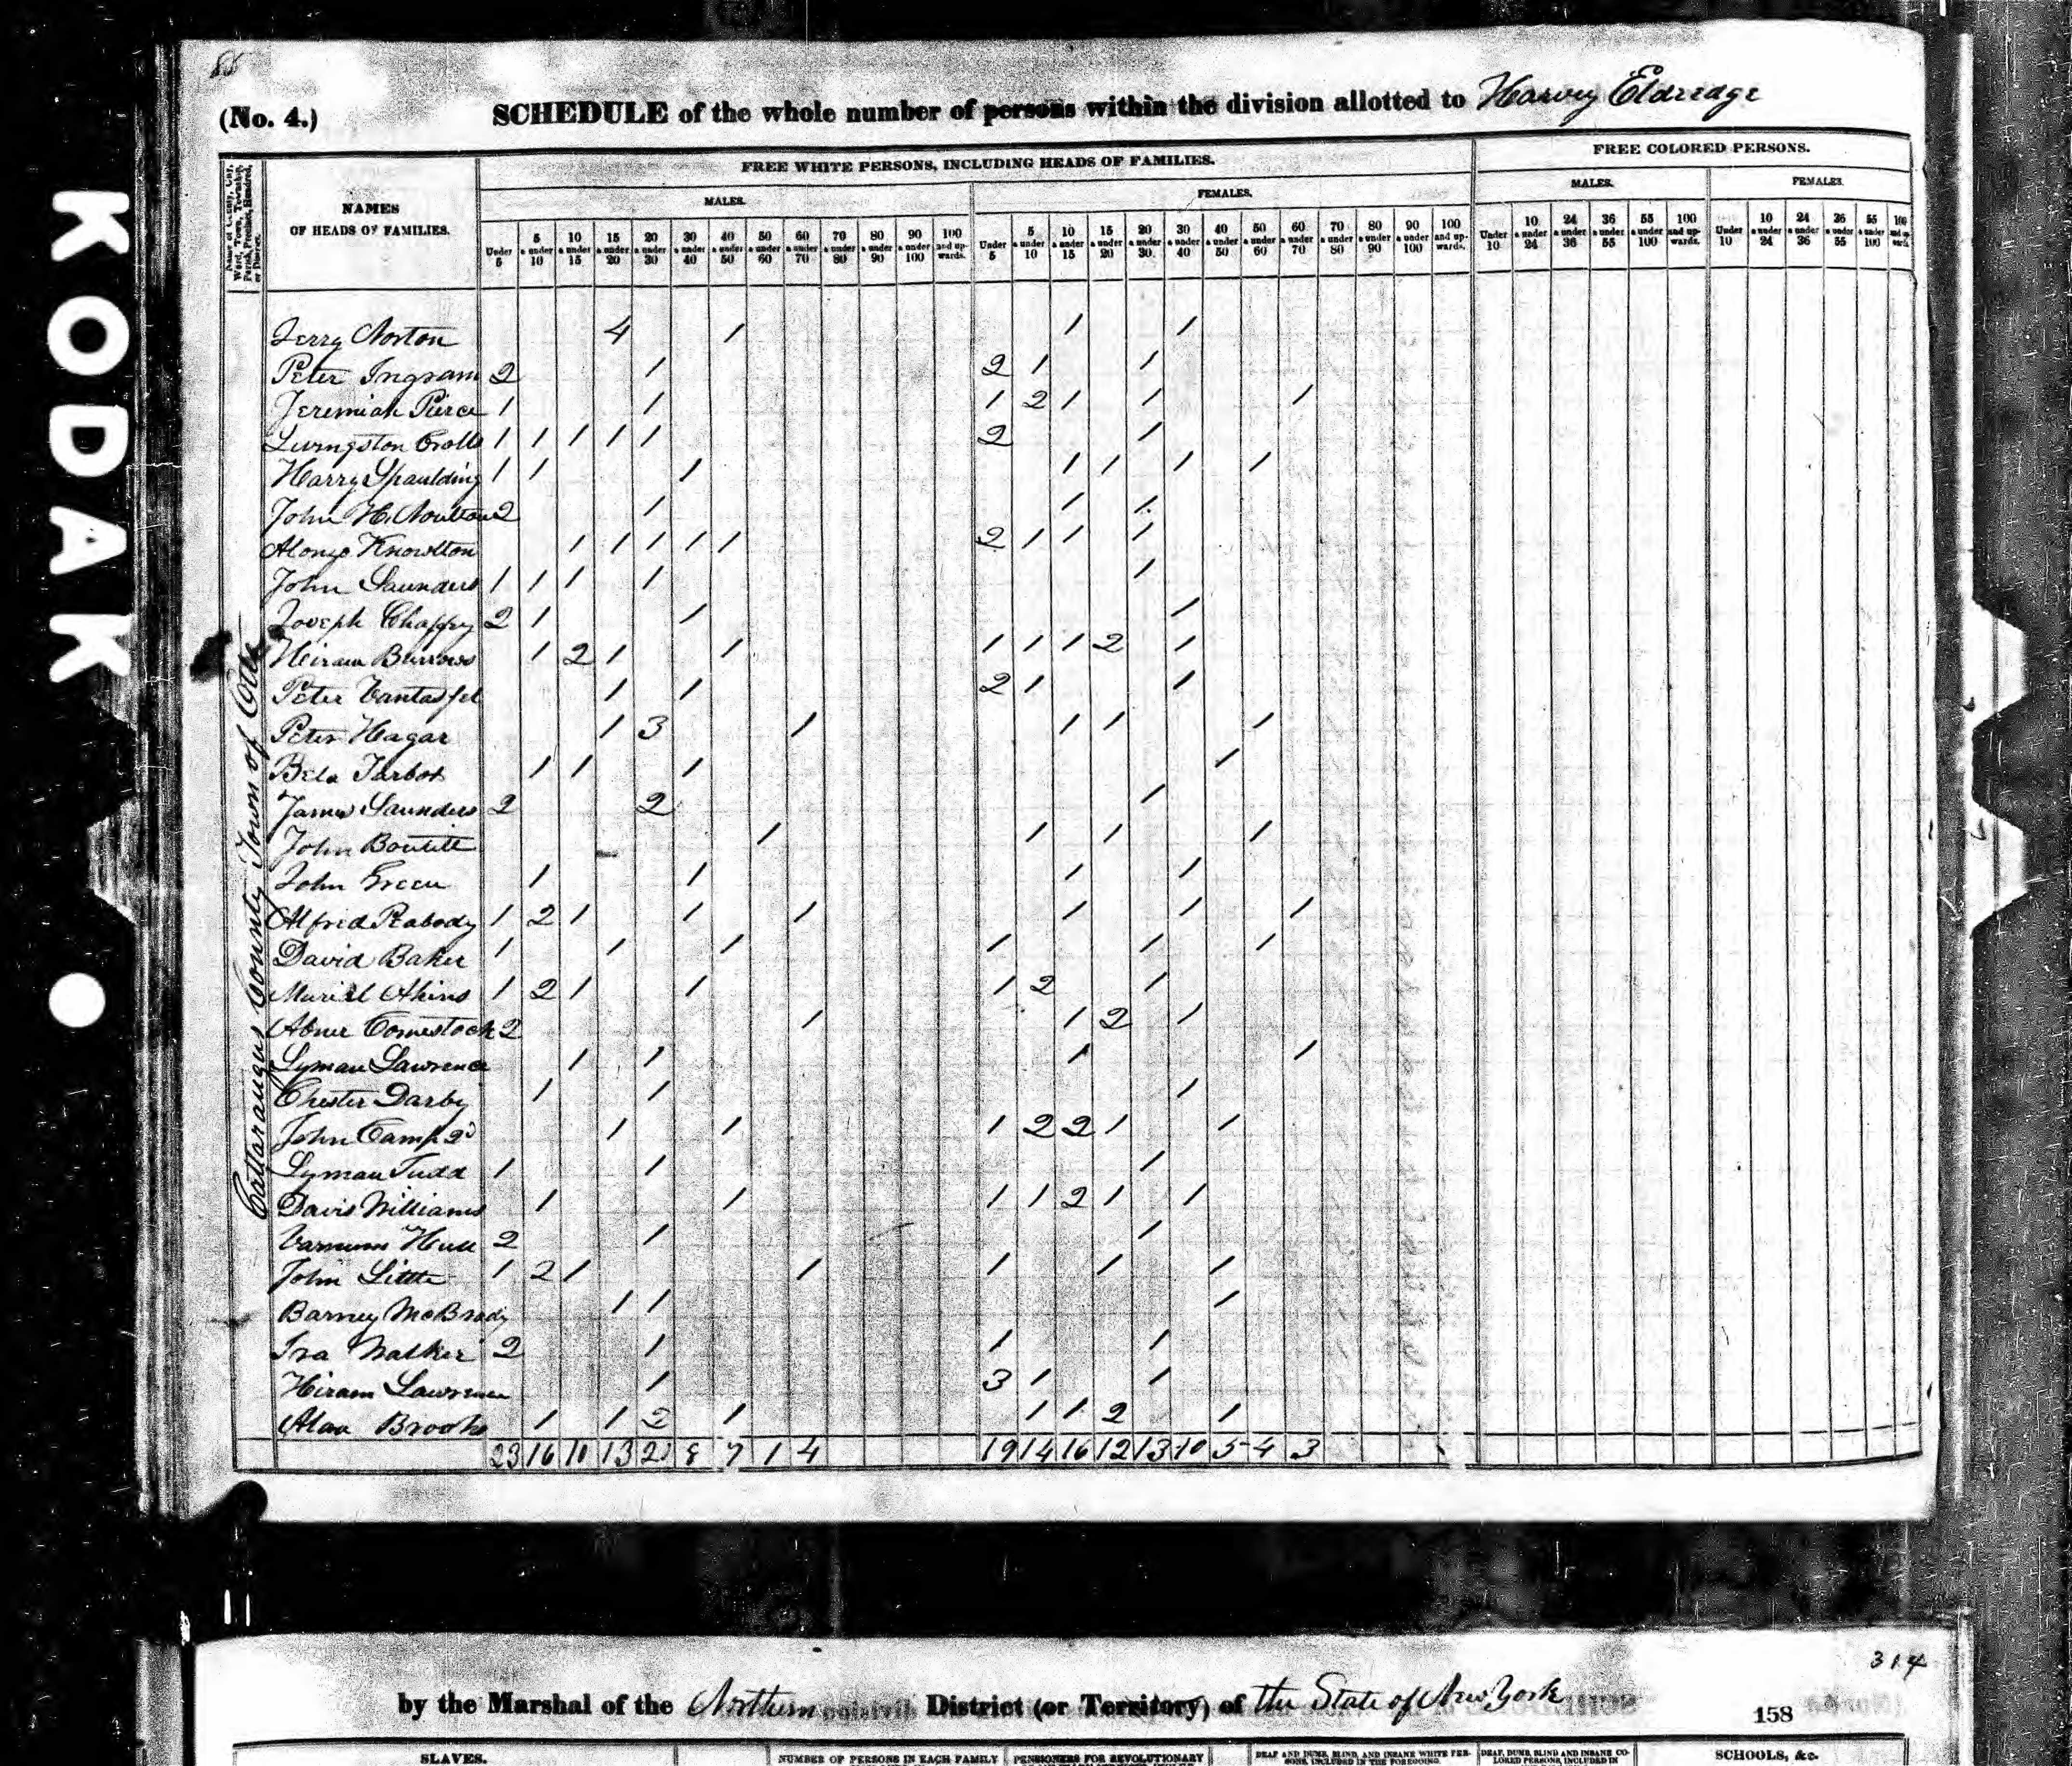 KODAK
(No. 4.) SCHEDULE of the whole number of persons within the division allotted to Harvey Eldredge
FREE WHITE PERSONS, INCLUDING HEADS OF FAMILIES. FREE COLORED PERSONS.
MALES. FEMALES. MALES. FEMALES.
NAMES
OF HEADS OF FAMILIES.
Under 5 5 & under 10 10 & under 15 15 & under 20 20 & under 30 30 & under 40 40 & under 50 50 & under 60 60 & under 70 70 & under 80 80 & under 90 90 & under 100 100 and upwards. Under 5 5 & under 10 10 & under 15 15 & under 20 20 & under 30. 30 & under 40 40 & under 50 50 & under 60 60 & under 70 70 & under 80 80 & under 90 90 & under 100 100 and upwards. Under 10 10 & under 24 24 & under 36 36 & under 55 55 & under 100 100 and upwards. Under 10 10 & under 24 24 & under 36 36 & under 55 55 & under 100 100 and upwards.
Cattaraugus County Town of
Jerry Norton 4 1 1 1
Peter Ingram 2 1 2 1 1
Jeremiah Pierce 1 1 1 2 1 1 1
Livingston 1 1 1 1 1 2 1
Harry Spaulding 1 1 1 1 1 1 1
John H. 2 1 1 1
Alonzo Knowlton 1 1 1 1 1 2 1 1 1
John Saunders 1 1 1 1 1
Joseph Chaffey 2 1 1 1
Heiram Burrows 1 2 1 1 1 1 1 2 1
Peter 1 1 2 1 1
Peter Hagar 1 3 1 1 1 1
Bela Tarbox 1 1 1 1
James Saunders 2 2 1
John Boutell 1 1 1 1
John Green 1 1 1 1
Alfred Peabody 1 2 1 1 1 1 1 1
David Baker 1 1 1 1 1 1
Akins 1 2 1 1 1 2 1
Abner Comestock 2 1 1 2 1
Lyman Lawrence 1 1 1 1
Chester Darby 1 1 1
John Camp 2d 1 1 1 2 2 1 1
Lyman Judd 1 1 1
Davis Williams 1 1 1 1 2 1 1
Varnum Hull 2 1 1
John Little 1 2 1 1 1 1 1
Barney McBrady 1 1 1
Ira Walker 2 1 1 1
Hiram Lawrence 1 3 1 1
Brooks 1 1 2 1 1 1 2 1
23 16 11 13 21 8 7 1 4 19 14 16 12 13 10 5 4 3
314
by the Marshal of the Northern District (or Territory) of the State of New York 158
SLAVES. NUMBER OF PERSONS IN EACH FAMILY PENSIONERS FOR REVOLUTIONARY DEAF AND DUMB, BLIND, AND INSANE WHITE PERSONS, INCLUDED IN THE FOREGOING. DEAF, DUMB, BLIND AND INSANE COLORED PERSONS, INCLUDED IN SCHOOLS, &c.